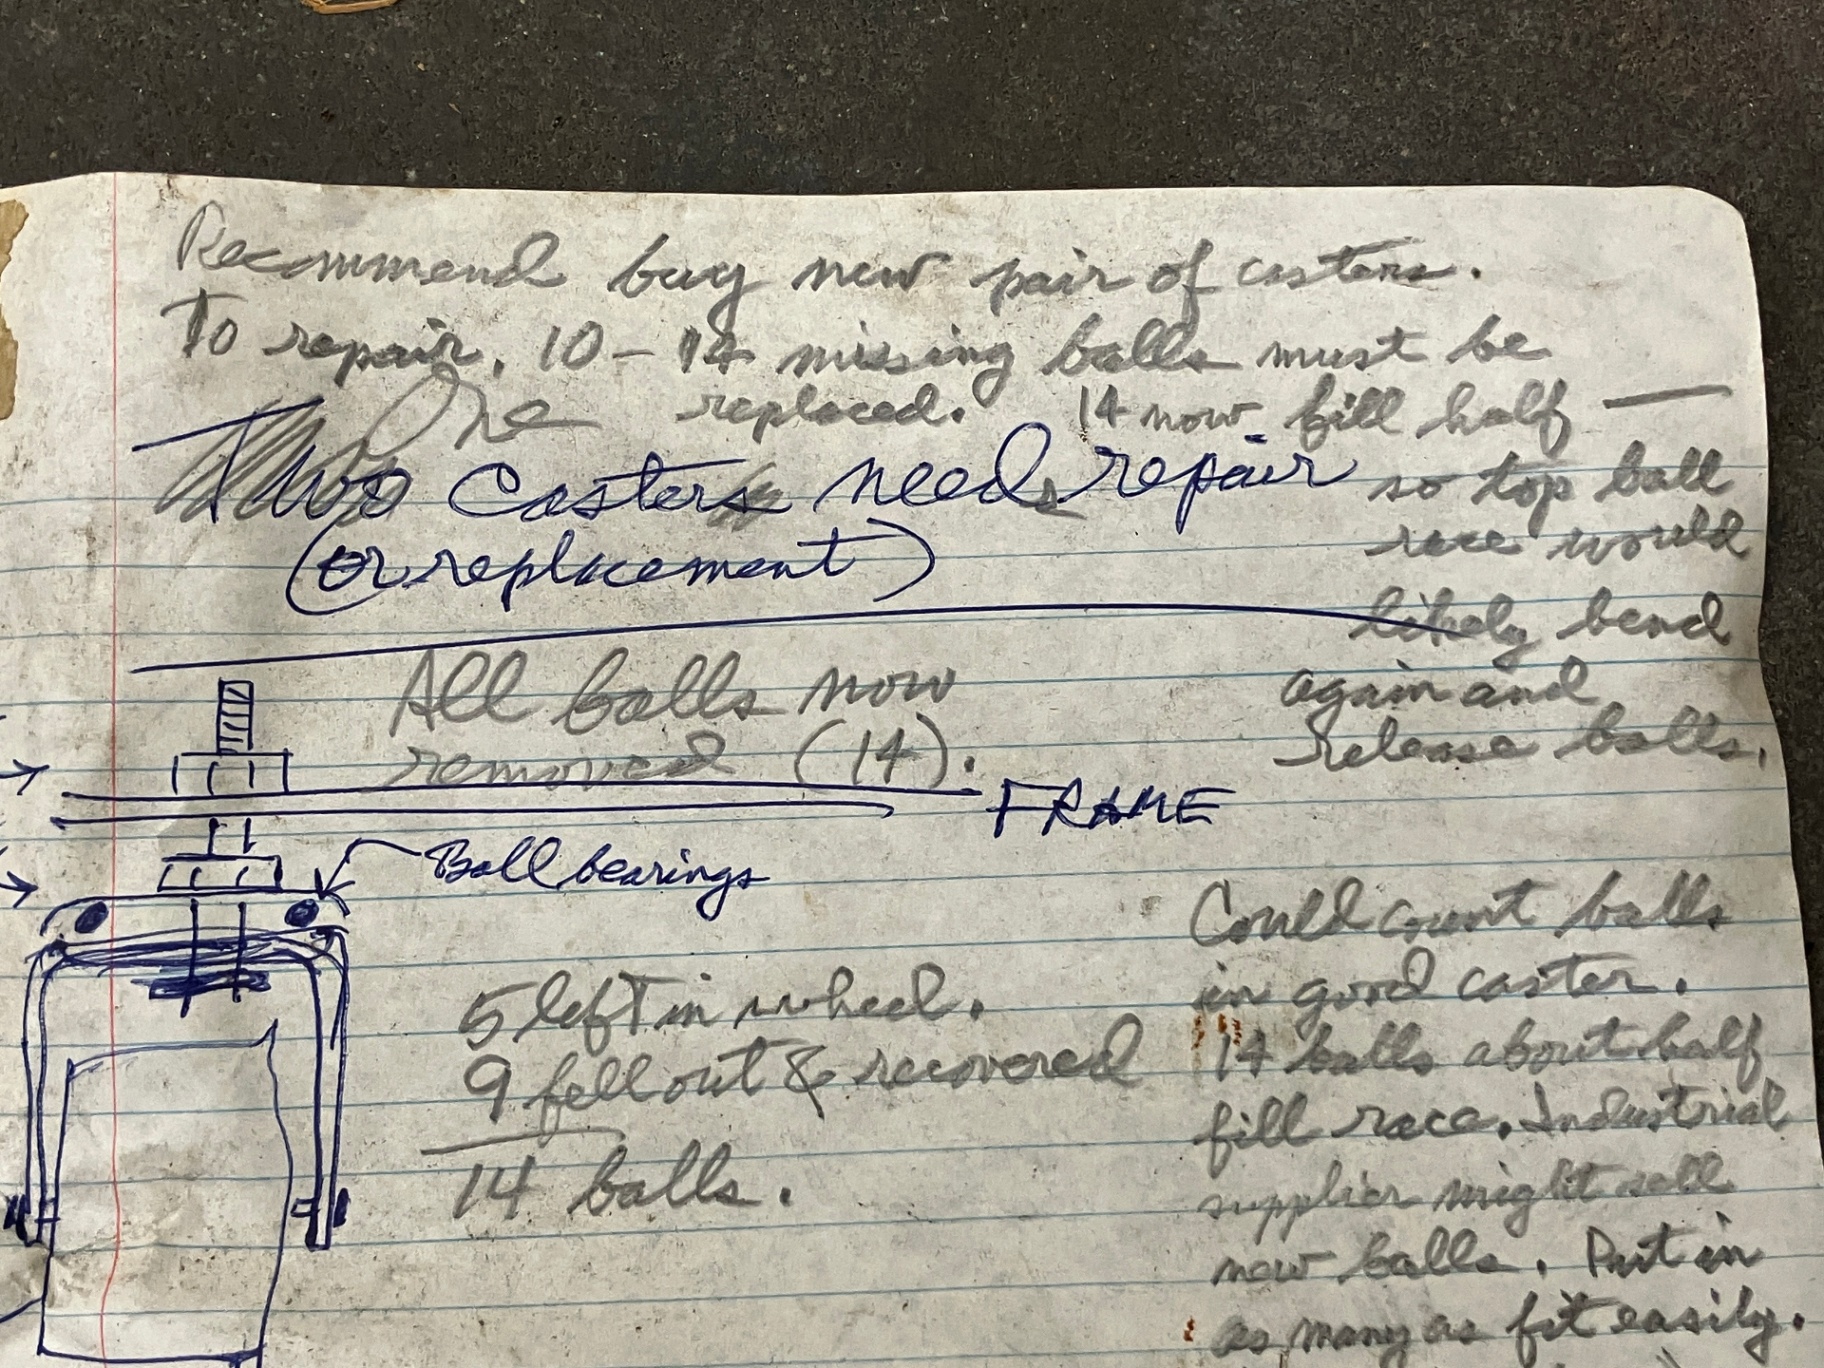 Recommend buy new pair of casters.
To repair, 10-14 missing balls must be
replaced. 14 now fill half —
so top ball
race would
likely bend
again and
release balls.
One
Two Casters needs repair
(or replacement)
All balls now
removed (14).
FRAME
Ball bearings
5 left in wheel.
9 fell out & recovered
14 balls.
Could count balls
in good caster.
14 balls about half
fill race. Industrial
supplier might sell
new balls. Put in
as many as fit easily.